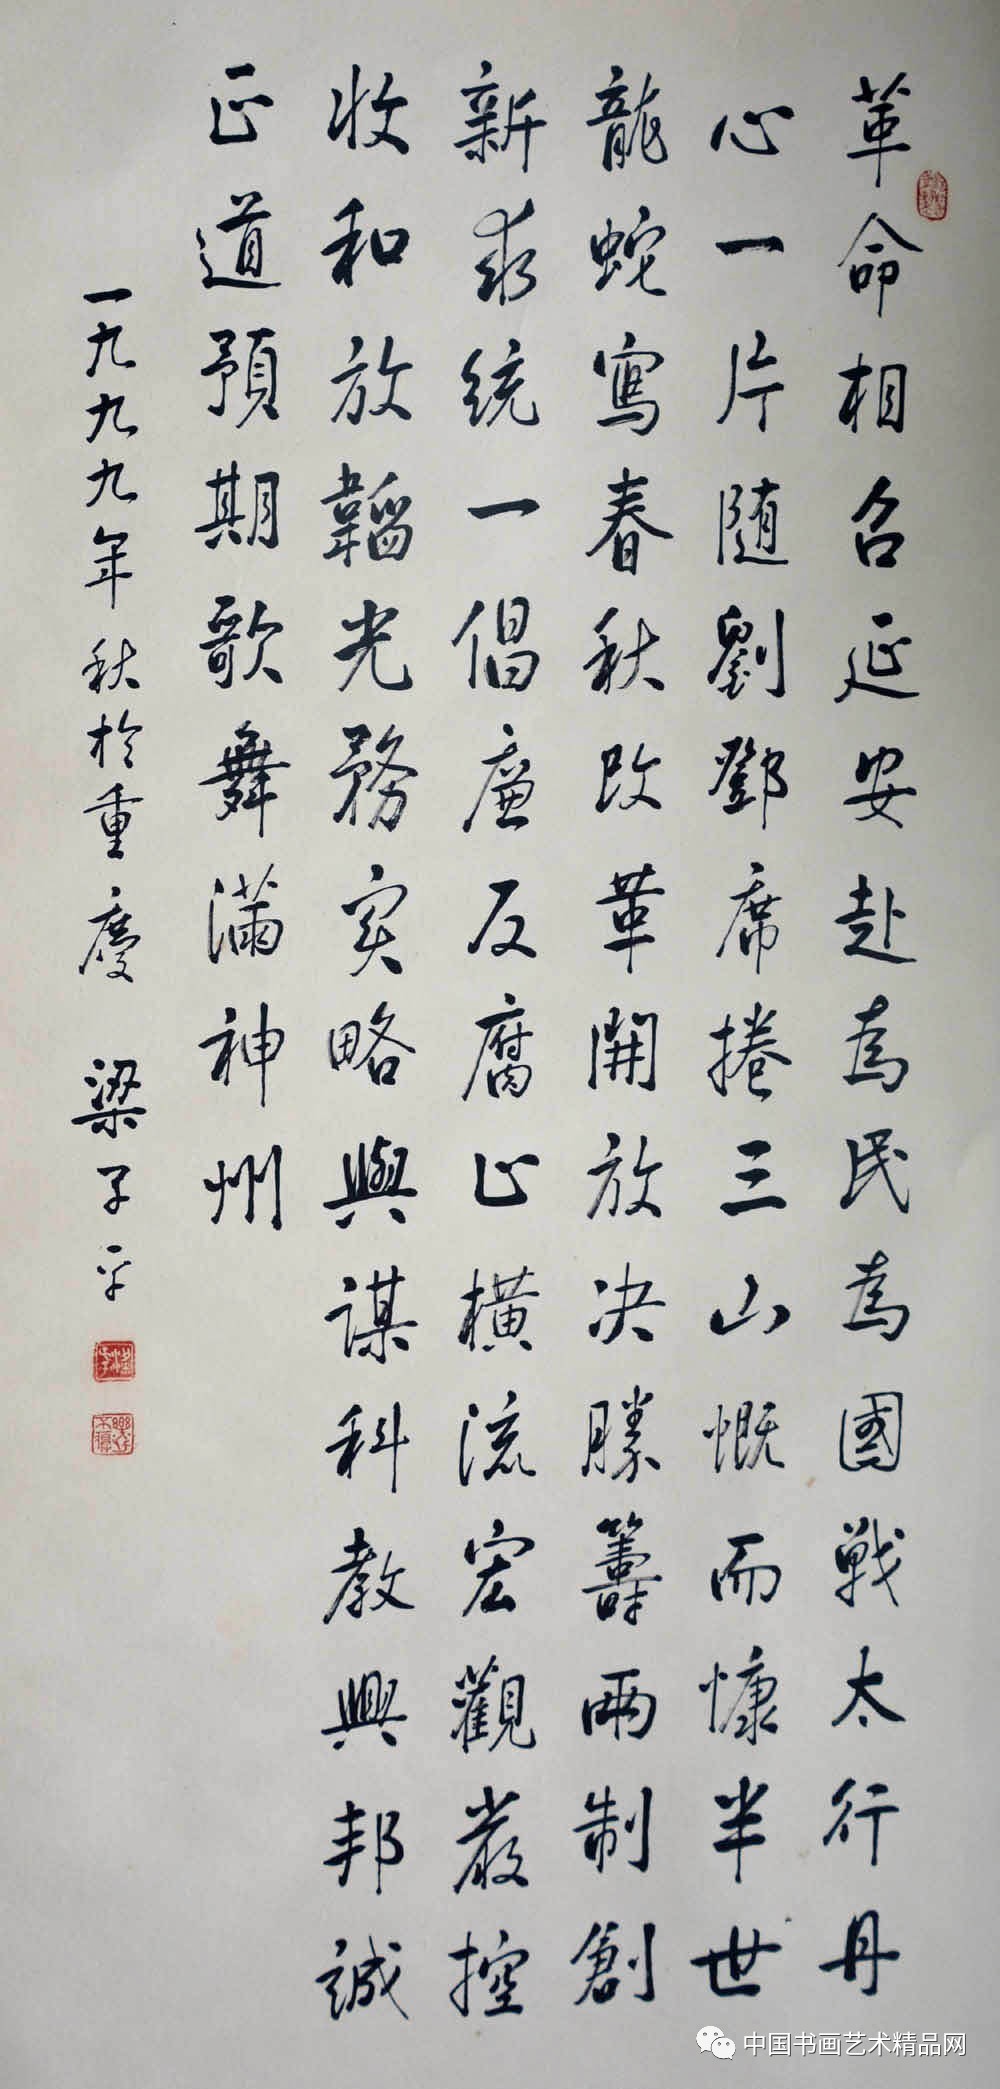 革命相召延安赴為民為國戰太行丹
心一片随劉鄧席捲三山慨而慷半世
龍蛇寫春秋改革開放决勝籌兩制創
新求統一倡廉反腐止橫流宏觀嚴控
收和放韜光務实略與謀科教興邦誠
正道預期歌舞滿神州
一九九九年秋於重慶 梁子平
中国书画艺术精品网